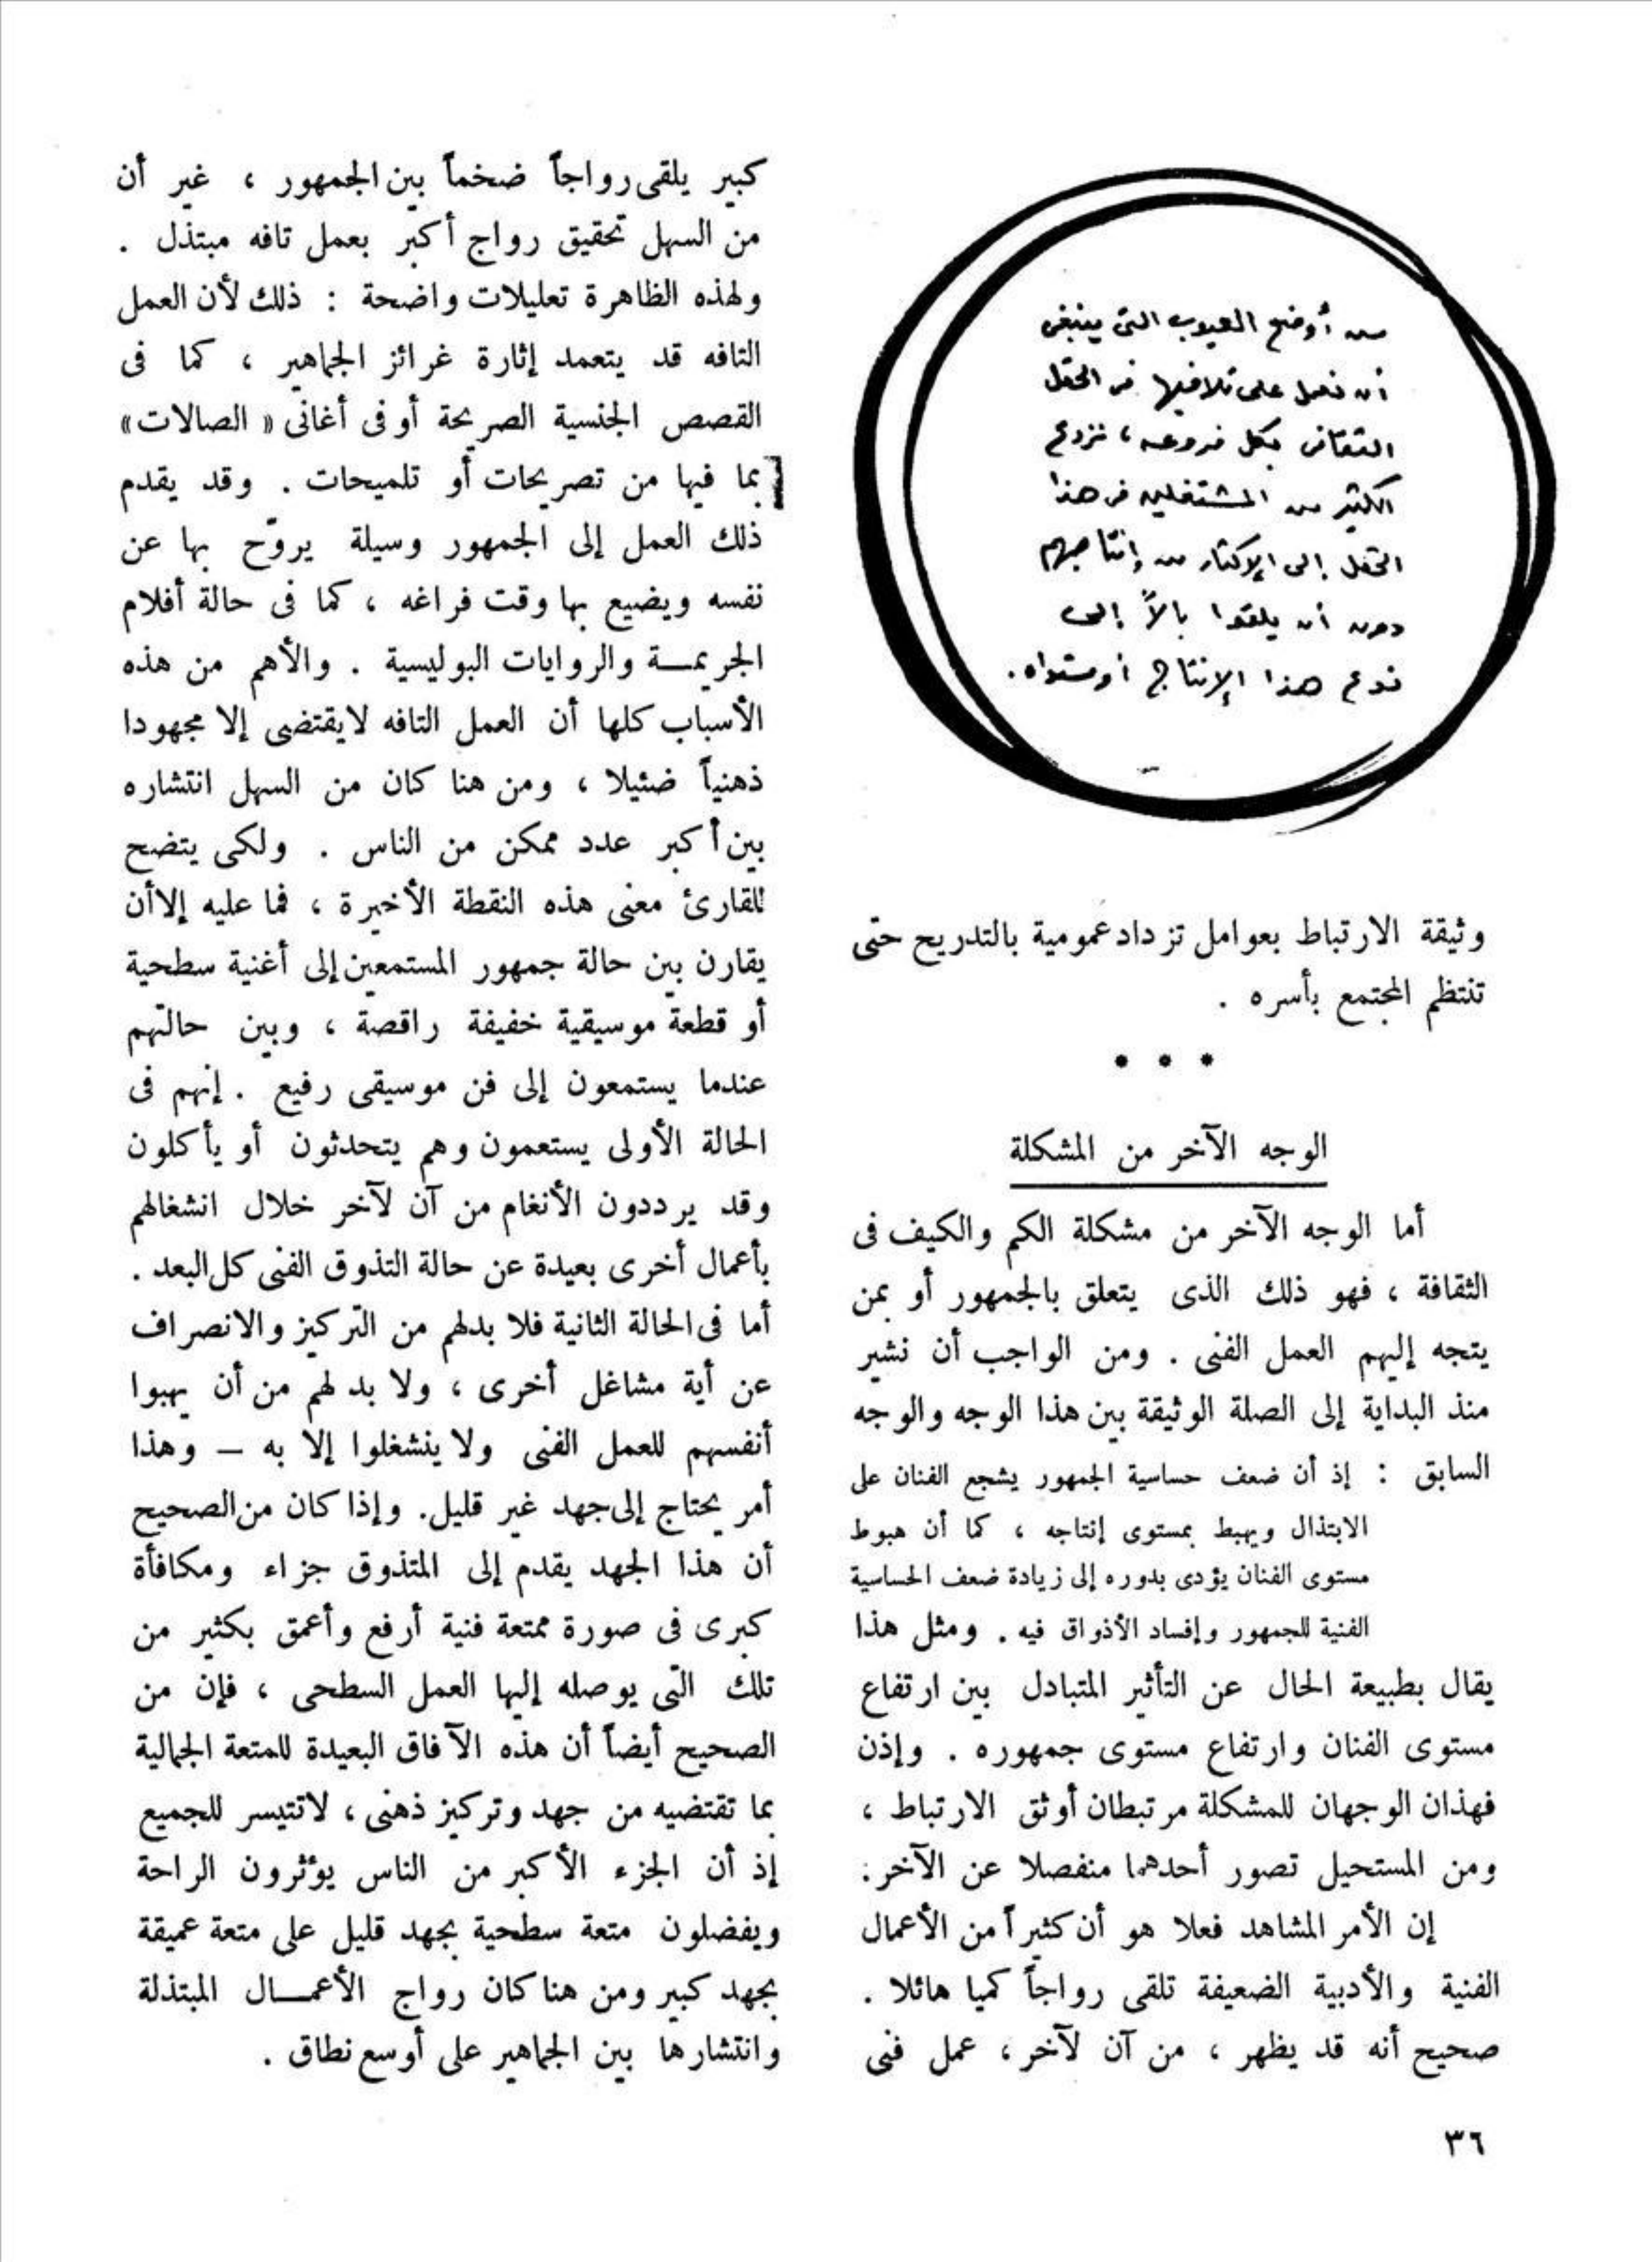 من أوضح العيوب التى ينبغى
أن نعمل على تلافيها فى الحقل
الثقافى بكل فروعه ، نزوع
الكثير من المشتغلين فى هذا
الحقل إلى الإكثار من إنتاجهم
دون أن يلقوا بالاً إلى
نوع هذا الإنتاج أو مستواه .
وثيقة الارتباط بعوامل تزداد عمومية بالتدريج حتى
تنتظم المجتمع بأسره .
* * *
الوجه الآخر من المشكلة
أما الوجه الآخر من مشكلة الكم والكيف فى
الثقافة ، فهو ذلك الذى يتعلق بالجمهور أو بمن
يتجه إليهم العمل الفنى . ومن الواجب أن نشير
منذ البداية إلى الصلة الوثيقة بين هذا الوجه والوجه
السابق : إذ أن ضعف حساسية الجمهور يشجع الفنان على
الابتذال ويهبط بمستوى إنتاجه ، كما أن هبوط
مستوى الفنان يؤدى بدوره إلى زيادة ضعف الحساسية
الفنية للجمهور وإفساد الأذواق فيه . ومثل هذا
يقال بطبيعة الحال عن التأثير المتبادل بين ارتفاع
مستوى الفنان وارتفاع مستوى جمهوره . وإذن
فهذان الوجهان للمشكلة مرتبطان أوثق الارتباط ،
ومن المستحيل تصور أحدهما منفصلا عن الآخر :
إن الأمر المشاهد فعلا هو أن كثيراً من الأعمال
الفنية والأدبية الضعيفة تلقى رواجاً كميا هائلا .
صحيح أنه قد يظهر ، من آن لآخر ، عمل فنى
كبير يلقى رواجاً ضخماً بين الجمهور ، غير أن
من السهل تحقيق رواج أكبر بعمل تافه مبتذل .
ولهذه الظاهرة تعليلات واضحة : ذلك لأن العمل
التافه قد يتعمد إثارة غرائز الجماهير ، كما فى
القصص الجنسية الصريحة أو فى أغانى « الصالات »
بما فيها من تصريحات أو تلميحات . وقد يقدم
ذلك العمل إلى الجمهور وسيلة يروّح بها عن
نفسه ويضيع بها وقت فراغه ، كما فى حالة أفلام
الجريمــة والروايات البوليسية . والأهم من هذه
الأسباب كلها أن العمل التافه لايقتضى إلا مجهودا
ذهنياً ضئيلا ، ومن هنا كان من السهل انتشاره
بين أكبر عدد ممكن من الناس . ولكى يتضح
للقارئ معنى هذه النقطة الأخيرة ، فما عليه إلاأن
يقارن بين حالة جمهور المستمعين إلى أغنية سطحية
أو قطعة موسيقية خفيفة راقصة ، وبين حالتهم
عندما يستمعون إلى فن موسيقى رفيع . إنهم فى
الحالة الأولى يستعمون وهم يتحدثون أو يأكلون
وقد يرددون الأنغام من آن لآخر خلال انشغالهم
بأعمال أخرى بعيدة عن حالة التذوق الفنى كل البعد .
أما فى الحالة الثانية فلا بدلهم من التركيز والانصراف
عن أية مشاغل أخرى ، ولا بد لهم من أن يهبوا
أنفسهم للعمل الفنى ولا ينشغلوا إلا به – وهذا
أمر يحتاج إلى جهد غير قليل. وإذا كان من الصحيح
أن هذا الجهد يقدم إلى المتذوق جزاء ومكافأة
كبرى فى صورة ممتعة فنية أرفع وأعمق بكثير من
تلك التى يوصله إليها العمل السطحى ، فإن من
الصحيح أيضاً أن هذه الآفاق البعيدة للمتعة الجمالية
بما تقتضيه من جهد وتركيز ذهنى ، لاتتيسر للجميع
إذ أن الجزء الأكبر من الناس يؤثرون الراحة
ويفضلون متعة سطحية بجهد قليل على متعة عميقة
بجهد كبير ومن هنا كان رواج الأعمــال المبتذلة
وانتشارها بين الجماهير على أوسع نطاق .
٣٦